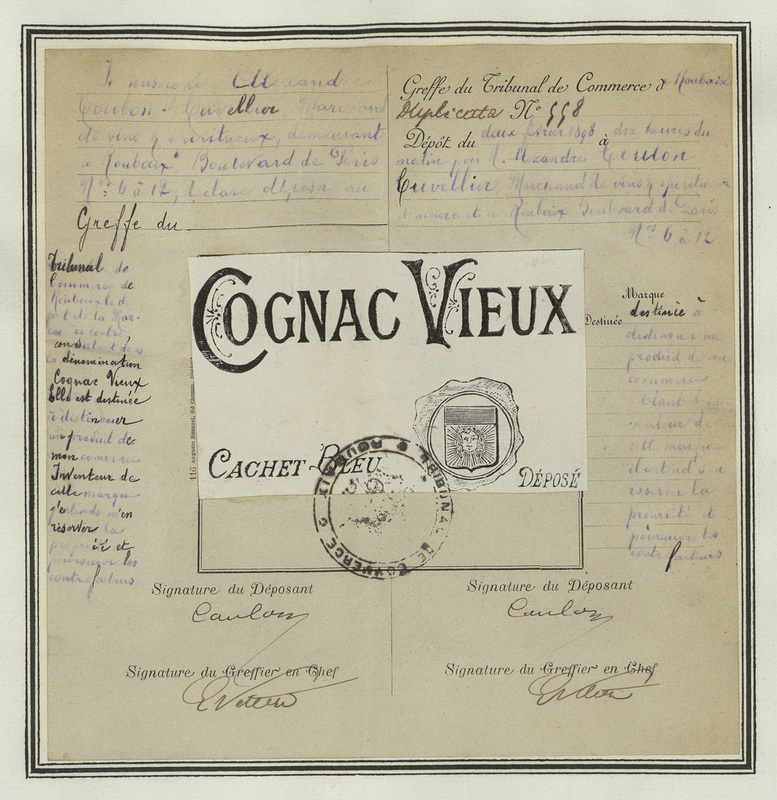 Je soussigné Allexand
Coulon-Cuvellier, Marchand
de vins & spiritueux, demeurant
à Roubaix Boulevard de Paris
Nos 6 à 12, déclare déposer au
Greffe du
Tribunal de
Commerce de
Roubaix le dé-
pôt de la Mar-
que ci contre
consistant dans
la dénomination
Cognac Vieux
Elle est destinée
à distinguer
un produit de
mon commerce
Inventeur de
cette marque
j'entends m'en
réserver la
propriété et
poursuivre les
contrefacteurs
Greffe du Tribunal de Commerce d Roubaix
Duplicata No 558
Dépôt du deux février 1898 à dix heures du
matin par M. Alexandre Coulon
Cuvellier Marchand de vins & spiritueux
demeurant à Roubaix Boulevard de Paris
Nos 6 à 12
Marque
Destinée destinée à
distinguer un
produit de son
commerce
Etant l'in-
venteur de
cette marque
il entend s'en
réserver la
propriété et
poursuivre les
contrefacteurs
COGNAC VIEUX
CACHET BLEU
DÉPOSÉ
TRIBUNAL DE COMMERCE ROUBAIX
Signature du Déposant
Coulon
Signature du Greffier en Chef
Signature du Déposant
Coulon
Signature du Greffier en Chef